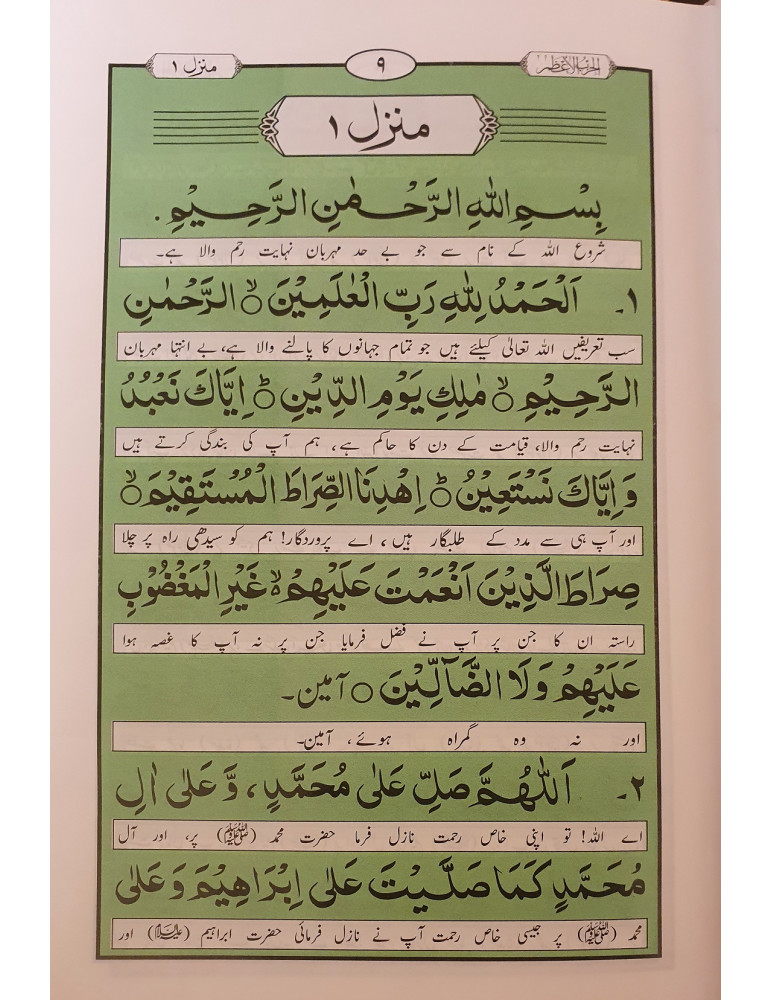 الحزب الاعظم ۹ منزل ۱
منزل ۱
بِسْمِ اللهِ الرَّحْمٰنِ الرَّحِيْمِ.
شروع اللہ کے نام سے جو بے حد مہربان نہایت رحم والا ہے۔
۱۔ اَلْحَمْدُ لِلّٰهِ رَبِّ الْعٰلَمِيْنَ ۙ الرَّحْمٰنِ
سب تعریفیں اللہ تعالیٰ کیلئے ہیں جو تمام جہانوں کا پالنے والا ہے، بے انتہا مہربان
الرَّحِيْمِ ۙ مٰلِكِ يَوْمِ الدِّيْنِ ؕ اِيَّاكَ نَعْبُدُ
نہایت رحم والا، قیامت کے دن کا حاکم ہے، ہم آپ کی بندگی کرتے ہیں
وَ اِيَّاكَ نَسْتَعِيْنُ ؕ اِهْدِنَا الصِّرَاطَ الْمُسْتَقِيْمَ ۙ
اور آپ ہی سے مدد کے طلبگار ہیں، اے پروردگار! ہم کو سیدھی راہ پر چلا
صِرَاطَ الَّذِيْنَ اَنْعَمْتَ عَلَيْهِمْ ۙ غَيْرِ الْمَغْضُوْبِ
راستہ ان کا جن پر آپ نے فضل فرمایا جن پر نہ آپ کا غصہ ہوا
عَلَيْهِمْ وَلَا الضَّآلِّيْنَ ○ آمین۔
اور نہ وہ گمراہ ہوئے، آمین۔
۲۔ اَللّٰهُمَّ صَلِّ عَلٰى مُحَمَّدٍ، وَّ عَلٰى اٰلِ
اے اللہ! تو اپنی خاص رحمت نازل فرما حضرت محمد (ﷺ) پر، اور آل
مُحَمَّدٍ كَمَا صَلَّيْتَ عَلٰى اِبْرَاهِيْمَ وَ عَلٰى
محمد (ﷺ) پر جیسی خاص رحمت آپ نے نازل فرمائی حضرت ابراہیم (علیہ السلام) اور